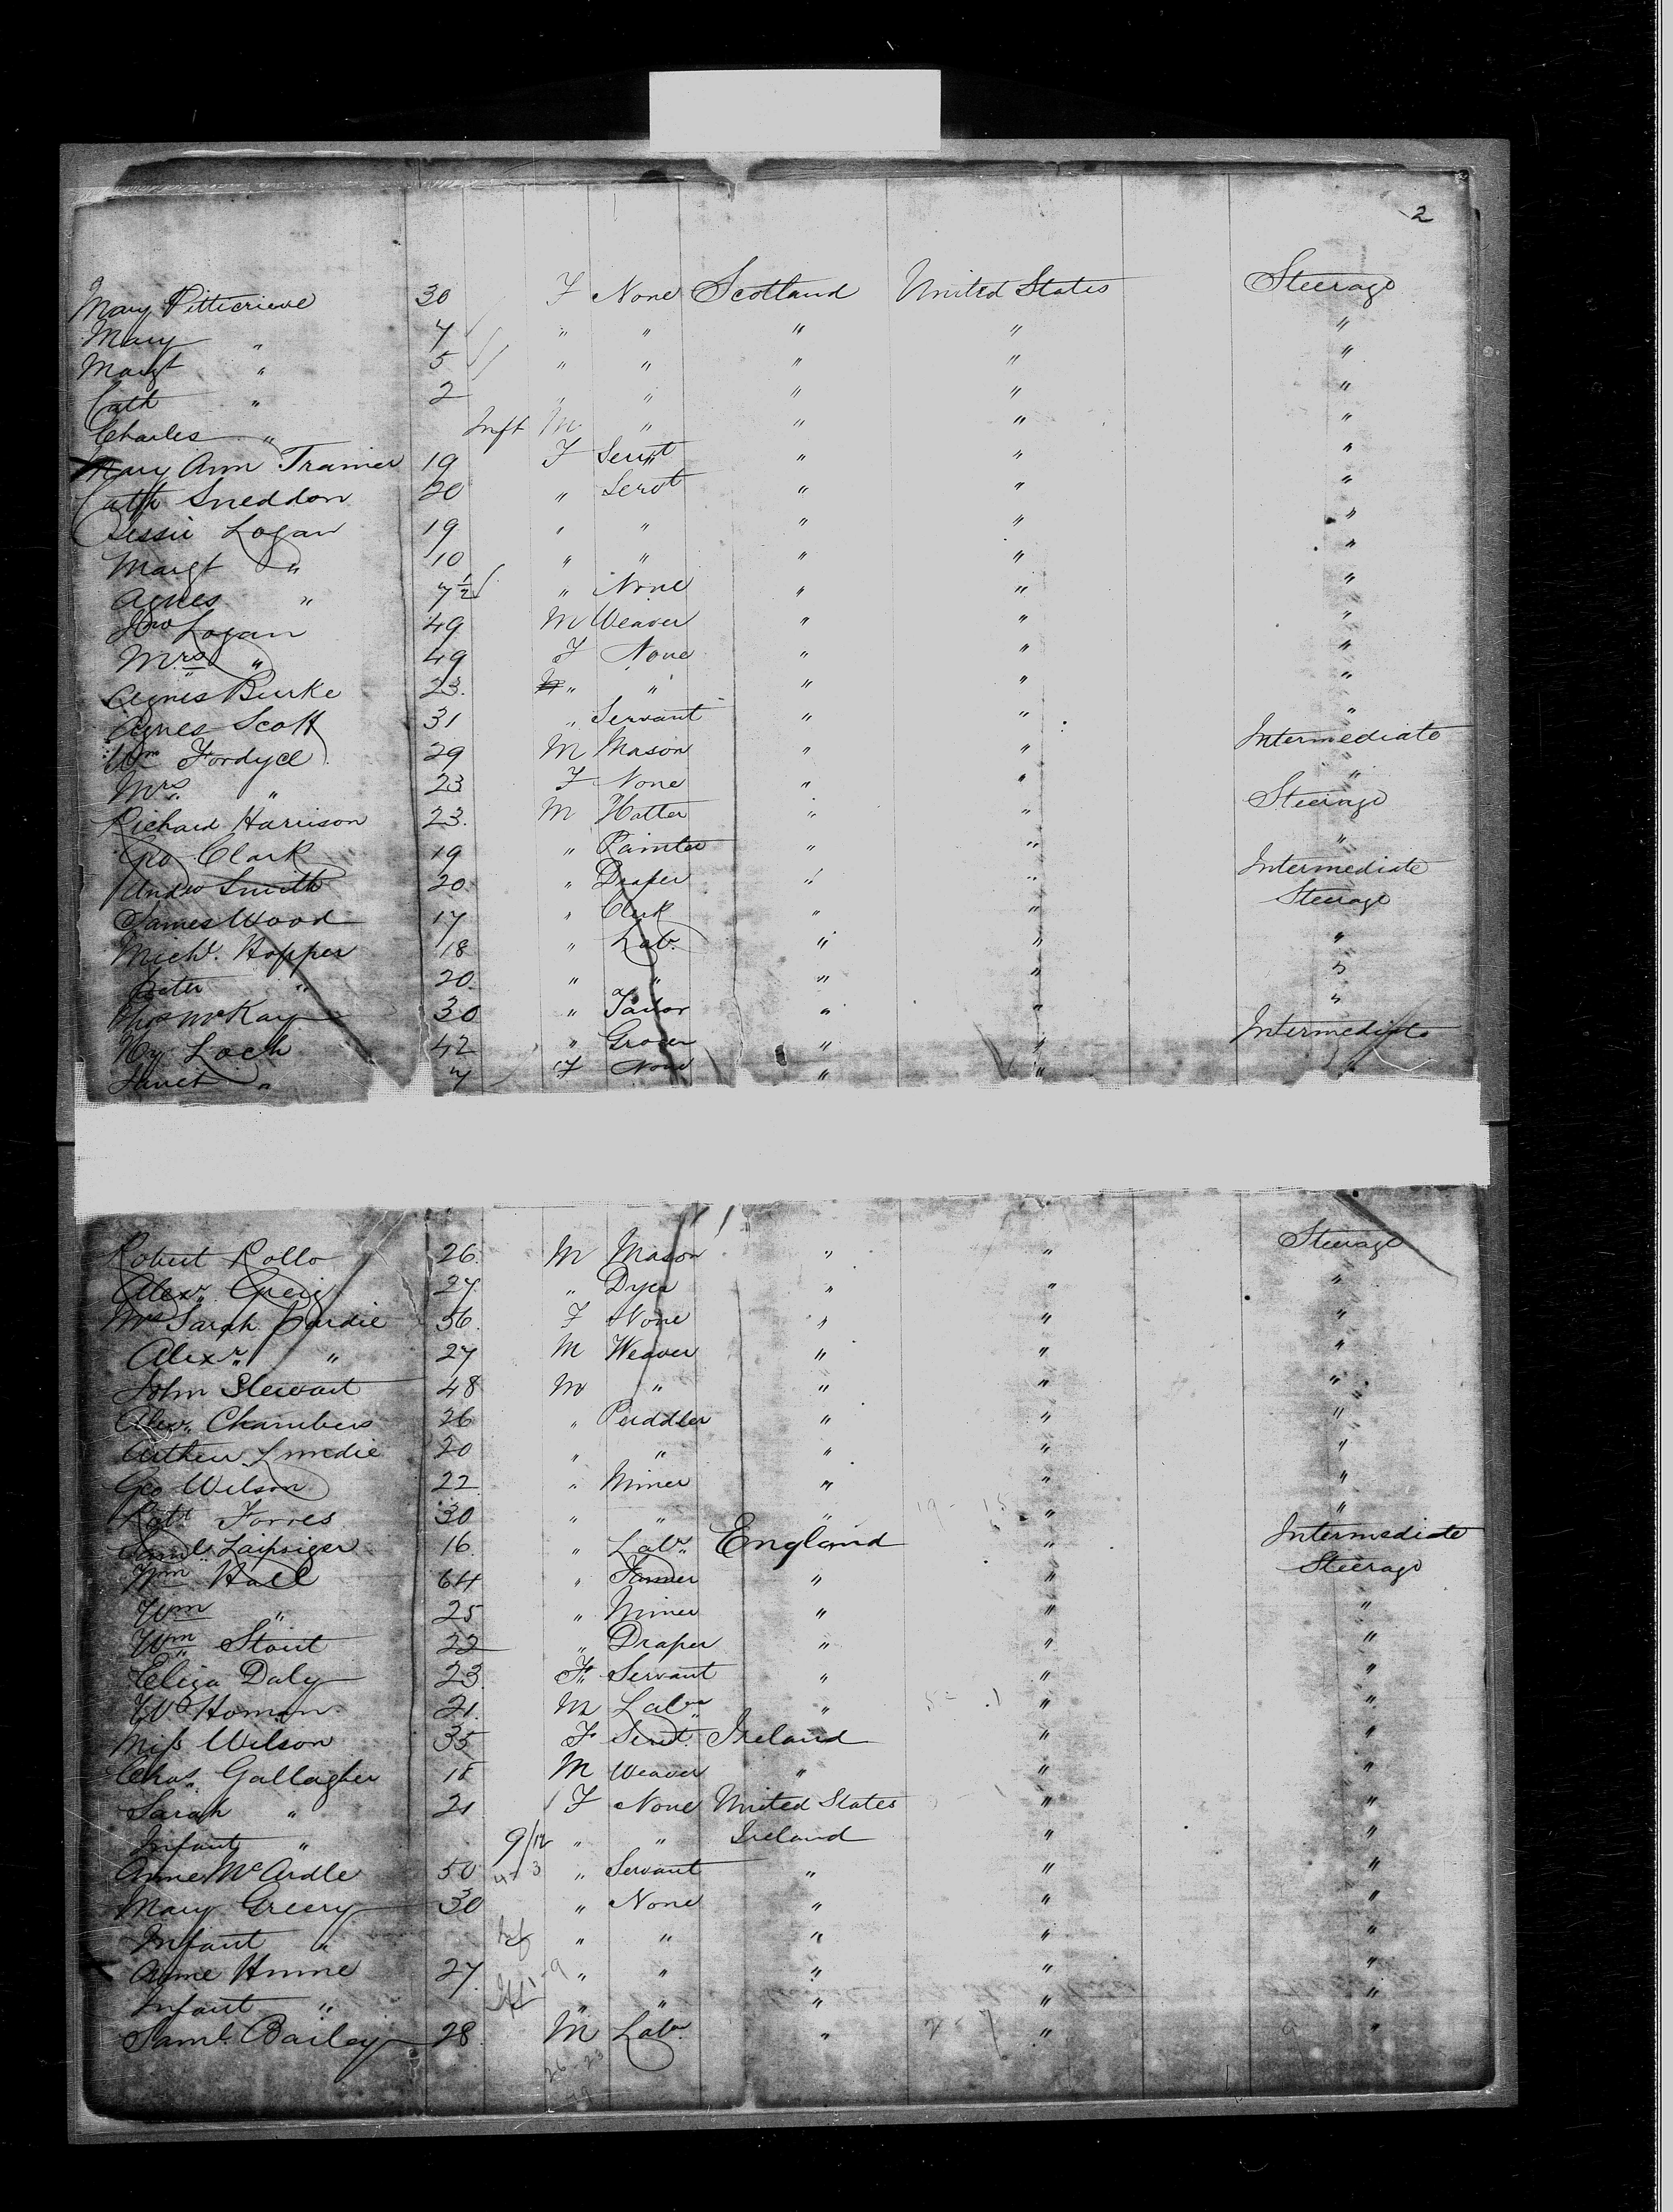 2
Mary Pitticrieve 30 F None Scotland United States Steerage
Mary " 7 " " " " "
Margt " 5 " " " " "
Cath " 2 " " " " "
Charles " Inft M " " " "
Mary Ann Trainer 19 F Servt " " "
Cath Sneddon 20 " Servt " " "
Jessie Logan 19 " " " " "
Margt " 10 " " " " "
Agnes " 7½ " None " " "
Jno Logan 49 M Weaver " " "
Mrs " 49 F None " " "
Agnes Burke 23 " " " " "
Agnes Scott 31 " Servant " " "
Wm Fordyce 29 M Mason " " Intermediate
Mrs " 23 F None " " "
Richard Harrison 23 M Hatter " " Steerage
Geo Clark 19 " Painter " " "
Andw Smith 20 " Draper " " Intermediate
James Wood 17 " Clerk " " Steerage
Michl. Hopper 18 " Labr. " " "
Peter " 20 " " " " "
Thos McKay 30 " Tailor " " "
Hy Loch 42 " Grocer " " Intermediate
Janet " 7 F None " " "
Robert Rollo 26 M Mason " " Steerage
Alexr. Greig 27 " Dyer " " "
Mrs Sarah Hardie 56 F None " " "
Alexr. " 27 M Weaver " " "
John Stewart 48 M " " " "
Alexr. Chambers 26 " Puddler " " "
Arthur Lundie 20 " " " " "
Geo Wilson 22 " Miner " " "
Robt. Forres 30 " " " " "
Saml. Laipsiger 16 " Labr. England " Intermediate
Wm Hall 64 " Farmer " " Steerage
Wm " 25 " Miner " " "
Wm Stout 22 " Draper " " "
Eliza Daly 23 F Servant " " "
Homan 21 M Labr " " "
Miss Wilson 35 F Servt. Ireland " "
Chas. Gallagher 18 M Weaver " " "
Sarah " 21 F None United States " "
Infant " 9/12 " " Ireland " "
Anne McArdle 50 " Servant " " "
Mary Greery 30 " None " " "
Infant " Inf " " " " "
Anne Hume 27 " " " " "
Infant " Inft " " " " "
Saml. Bailey 28 M Labr. " " "